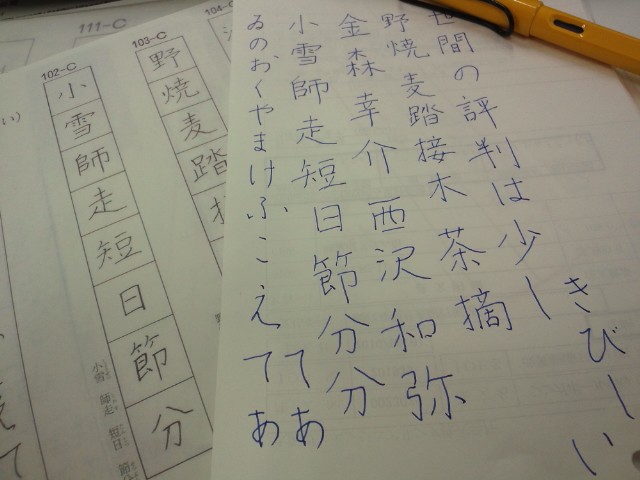 きびしい
世間の評判は少し
野焼麦踏接木茶摘
金森幸介西沢和弥
小雪師走短日節分分
てあ
ゐのおくやまけふこえてあ
111-C
104-C
103-C
野焼麦踏
102-C
小雪師走短日節分
小雪 師走 短日 節分